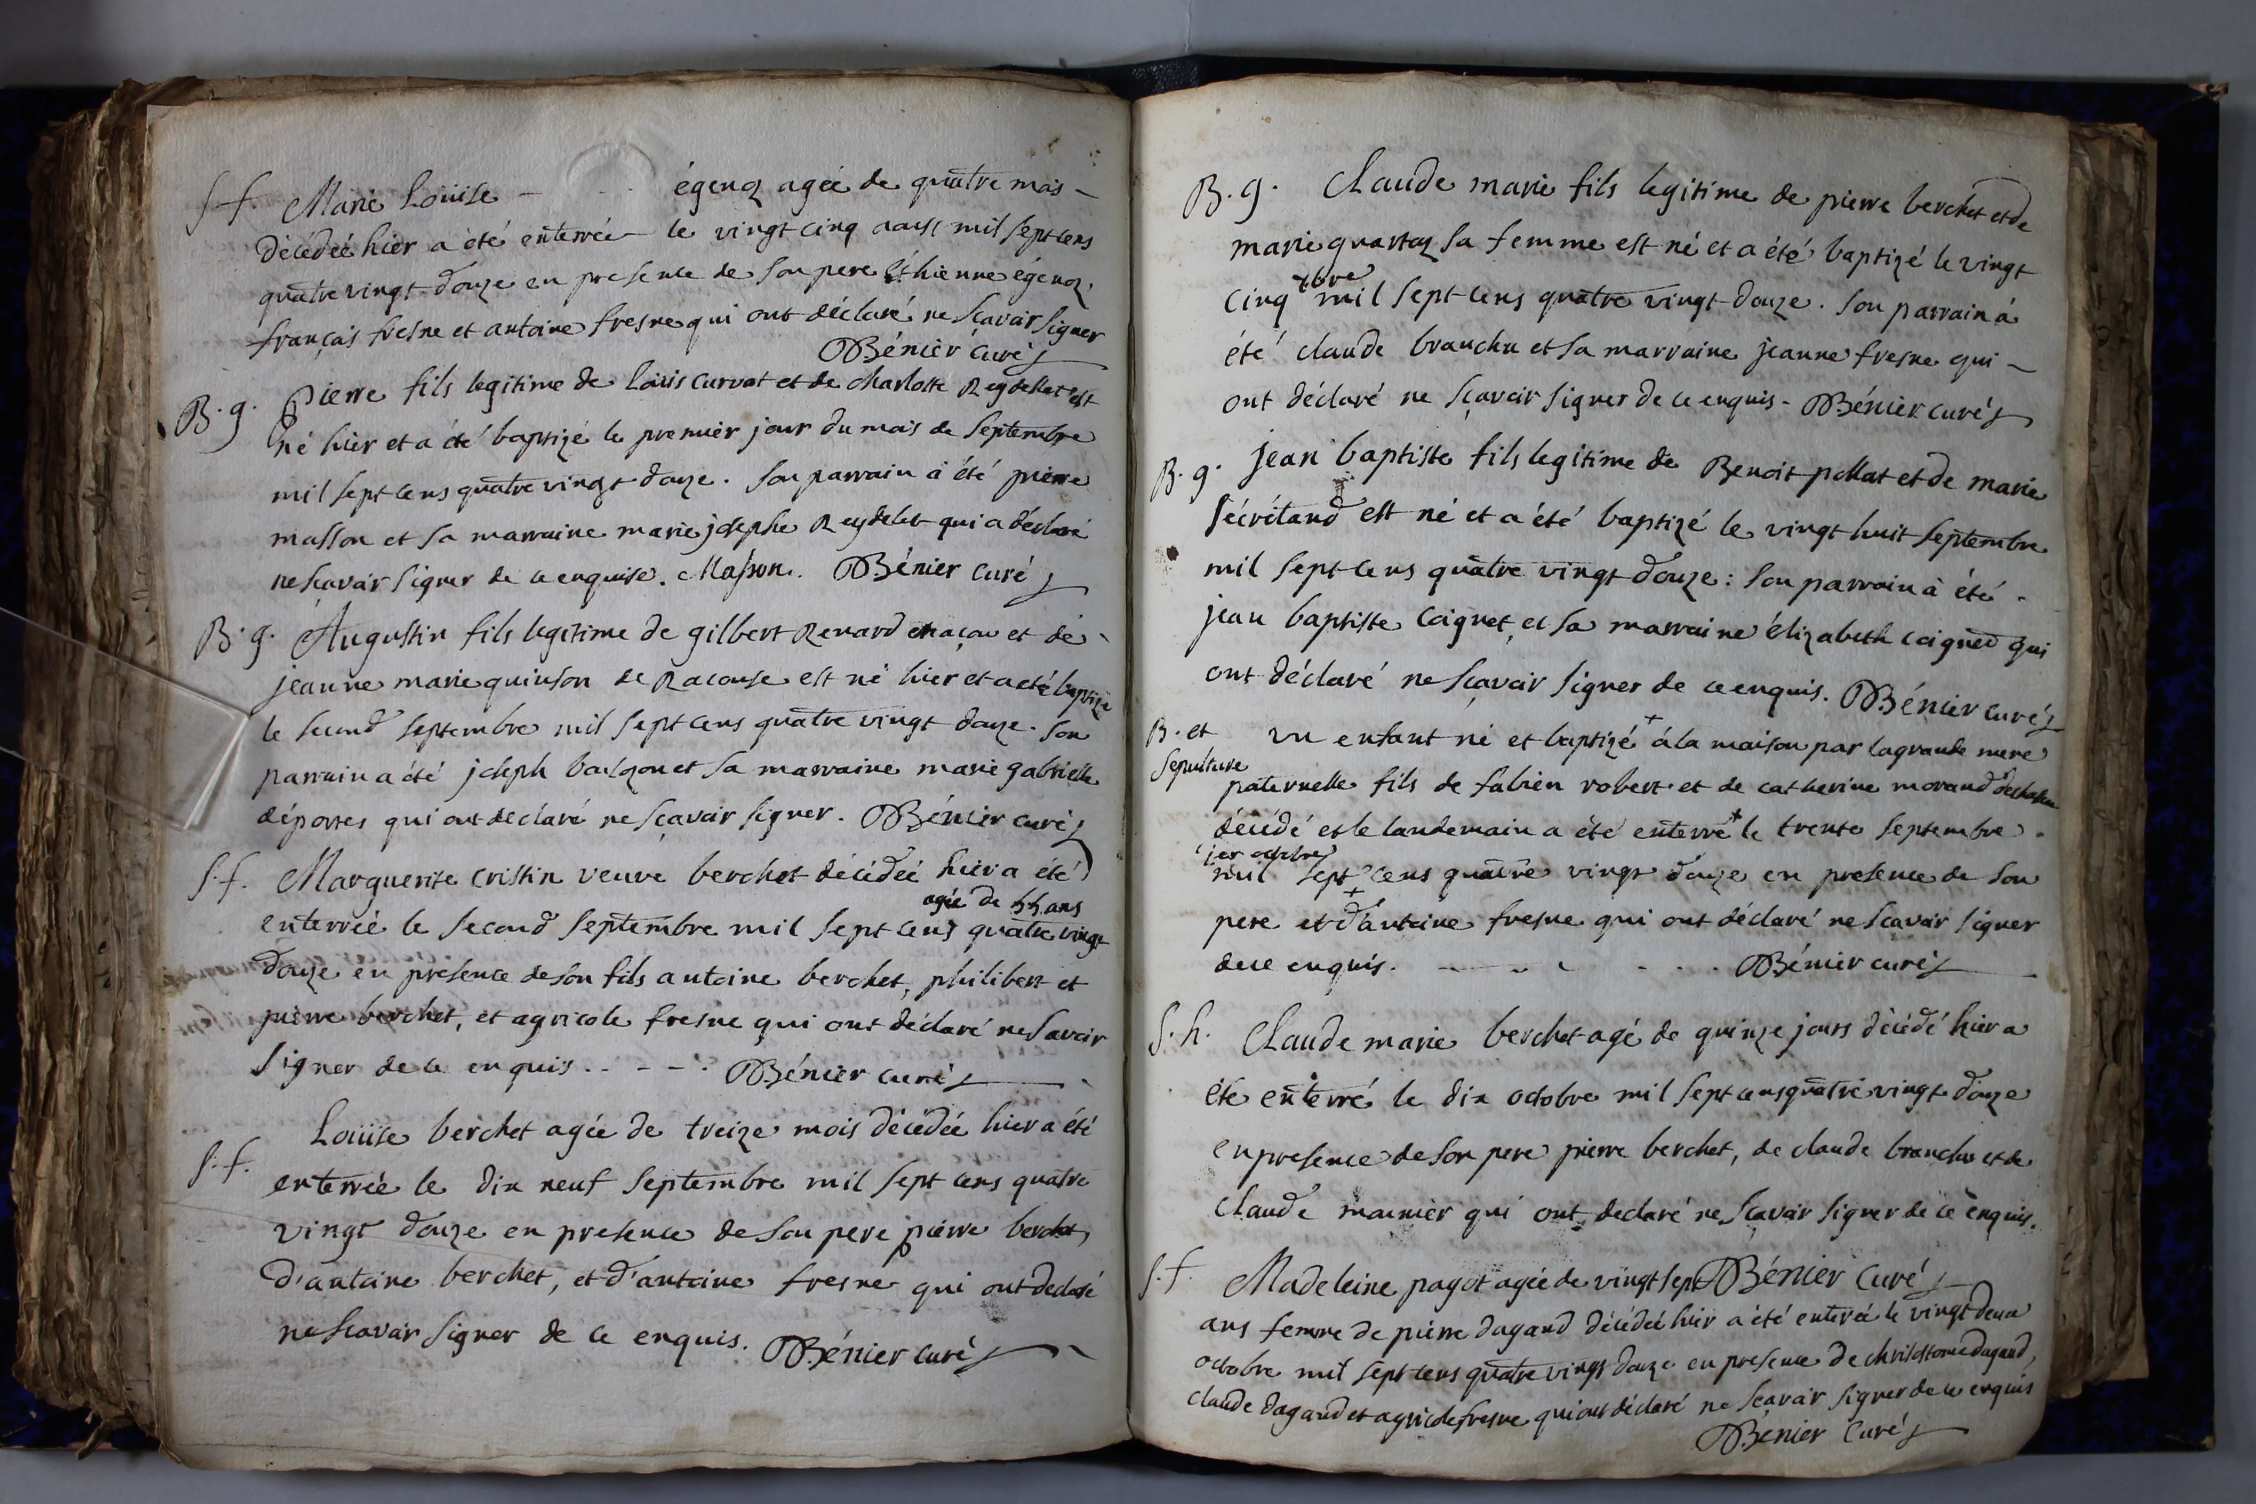 S. f. Marie Louise - égenoz agée de quatre mois -
décédée hier a été enterrée le vingt cinq aoust mil sept cens
quatre vingt douze en presence de son pere éthienne égenoz,
françois fresne et antoine fresne qui ont déclaré ne scavoir signer
Bénier curé
B. g. Pierre fils legitime de Loüis curvat et de charlotte Reydellet est
né hier et a été baptizé le premier jour du mois de Septembre
mil sept cens quatre vingt douze. son parrain a été pierre
masson et sa marraine marie josephe Reydelet qui a déclaré
ne scavoir signer de ce enquise. Masson. Bénier curé
B. g. Augustin fils legitime de gilbert Renard maçon et de
jeanne marie quinson de Racouse est né hier et a été baptizé
le second septembre mil sept cens quatre vingt douze. son
parrain a été joseph et sa marraine marie gabrielle
déportes qui ont declaré ne sçavoir signer. Bénier curé
S. f. Marguerite cristin veuve berchet décédée hier a été
agée de 55 ans
enterrée le second septembre mil sept cens quatre vingt
douze en presence de son fils antoine berchet, philibert et
pierre berchet, et agricole fresne qui ont déclaré ne savoir
signer de ce enquis. . - - . Bénier curé
Loüise berchet agée de treize mois décédée hier a été
S. f.
enterrée le dix neuf septembre mil sept cens quatre
vingt douze en presence de son pere pierre berchet,
d'antoine berchet, et d'antoine fresne qui ont declaré
ne scavoir signer de ce enquis. Bénier curé
B. g. Claude marie fils legitime de pierre berchet et de
marie quartoz sa femme est né et a été baptizé le vingt
7bre
cinq mil sept cens quatre vingt douze. son parrain a
été claude branchu et sa marraine jeanne fresne qui -
ont déclaré ne sçavoir signer de ce enquis - Bénier curé
B. g. jean baptiste fils legitime de Benoit pollat et de marie
sécrétand est né et a été baptizé le vingt huit septembre
mil sept cens quatre vingt douze: son parrain a été .
jean baptiste coignet, et sa marraine élizabeth coigned qui
ont déclaré ne sçavoir signer de ce enquis. Bénier curé
B. et un enfant né et baptizé + à la maison par la grande mere
sepulture
paternelle fils de fabien robert et de catherine morand
décédé et le landemain a été enterré + le trente septembre .
1er octobre
mil sept cens quatre vingt douze en presence de son
pere et d'antoine fresne qui ont déclaré ne scavoir signer
de ce enquis. Bénier curé
S. h. Claude marie berchet agé de quinze jours décédé hier a
été enterré le dix octobre mil sept cens quatre vingt douze
en presence de son pere pierre berchet, de claude branchu et de
claude mounier qui ont declaré ne sçavoir signer de ce enquis.
S. f. Madeleine pagot agée de vingt sept Bénier curé
ans femme de pierre dagand décédée hier a été enterrée le vingt deux
octobre mil sept cens quatre vingt douze en presence de chrisostome dagand,
claude dagand et agricole fresne qui ont déclaré ne scavoir signer de ce enquis
Bénier curé